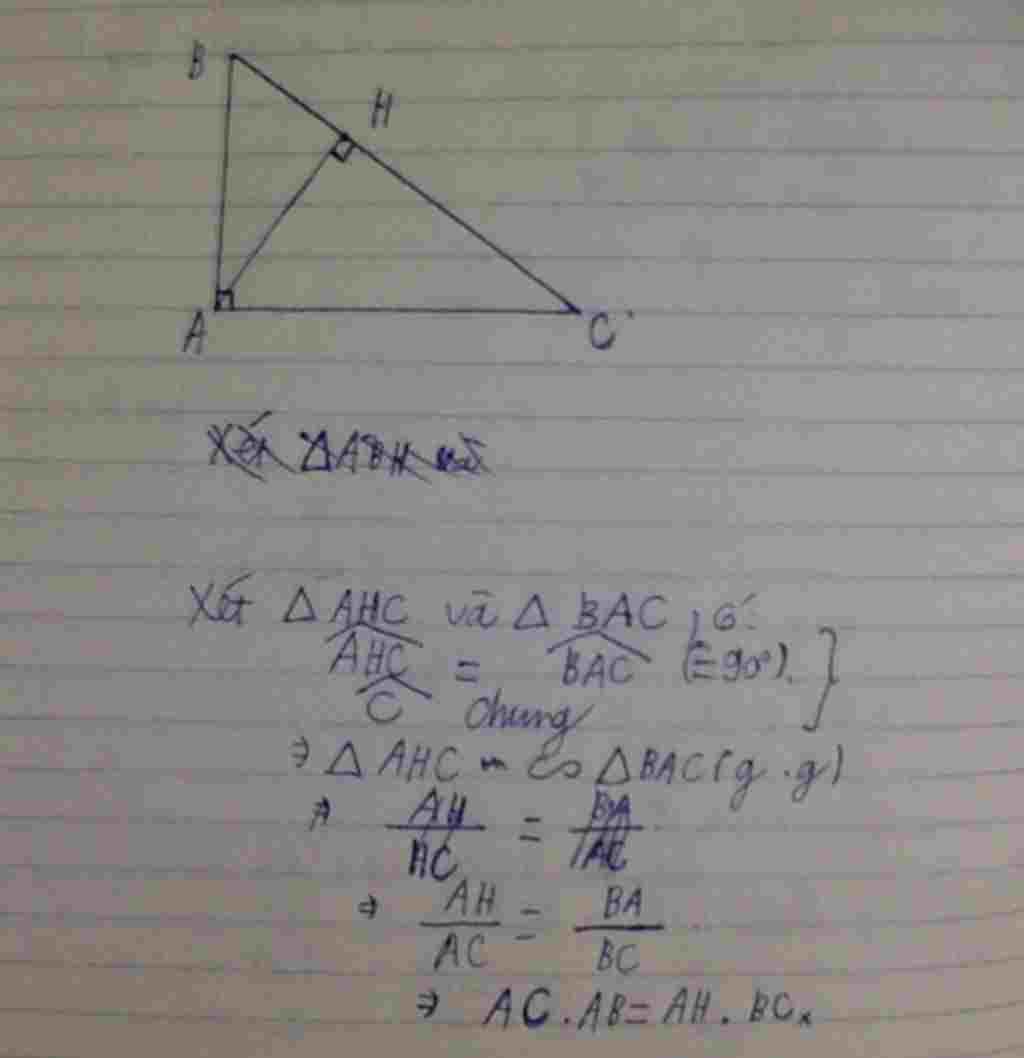 B
H
A
C
Xét ΔABH
Xét Δ AHC và Δ BAC, có:
AHC = BAC (=90°).
C chung
⇒ Δ AHC ∽ ΔBAC (g.g)
⇒ AH/HC = BA/AC
⇒ AH/AC = BA/BC
⇒ AC.AB = AH.BC